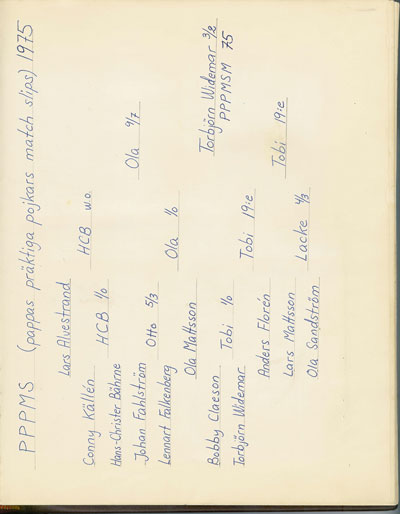 PPPMS (pappas präktiga pojkars match slips) 1975
Lars Alvestrand
Conny Källén
HCB w.o.
Hans-Christer Bährne
HCB 1/0
Johan Fahlström
Otto 5/3
Ola 9/7
Lennart Falkenberg
Ola 1/0
Ola Mattsson
Torbjörn Widemar 3/2
PPPMSM 75
Bobby Claeson
Tobi 1/0
Torbjörn Widemar
Tobi 19:e
Anders Florén
Tobi 19:e
Lars Mattsson
Lacke 4/3
Ola Sandström